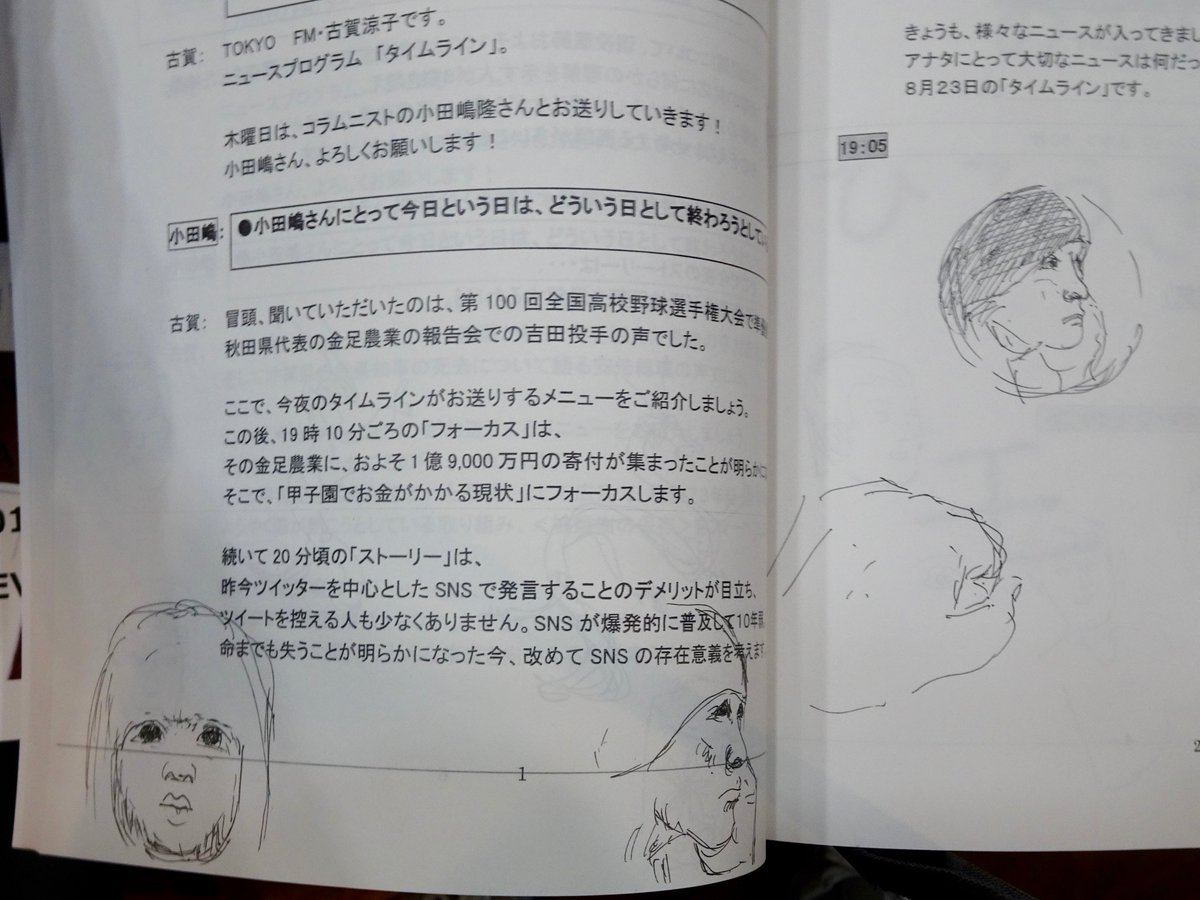 古賀: TOKYO FM・古賀涼子です。
ニュースプログラム 「タイムライン」。
木曜日は、コラムニストの小田嶋隆さんとお送りしていきます!
小田嶋さん、よろしくお願いします!
小田嶋: ●小田嶋さんにとって今日という日は、どういう日として終わろうとしてい
古賀: 冒頭、聞いていただいたのは、第100回全国高校野球選手権大会で準
秋田県代表の金足農業の報告会での吉田投手の声でした。
ここで、今夜のタイムラインがお送りするメニューをご紹介しましょう。
この後、19時10分ごろの「フォーカス」は、
その金足農業に、およそ1億9,000万円の寄付が集まったことが明らかに
そこで、「甲子園でお金がかかる現状」にフォーカスします。
続いて20分頃の「ストーリー」は、
昨今ツイッターを中心としたSNSで発言することのデメリットが目立ち、
ツイートを控える人も少なくありません。SNSが爆発的に普及して10年
命までも失うことが明らかになった今、改めてSNSの存在意義を考えます
1
きょうも、様々なニュースが入ってきまし
アナタにとって大切なニュースは何だっ
8月23日の「タイムライン」です。
19:05
2